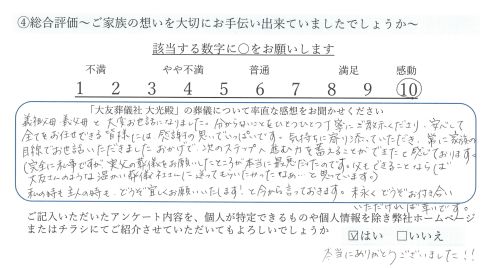 ④総合評価～ご家族の想いを大切にお手伝い出来ていましたでしょうか～
該当する数字に○をお願いします
不満 やや不満 普通 満足 感動
1 2 3 4 5 6 7 8 9 10
「大友葬儀社 大光殿」の葬儀について率直な感想をお聞かせください
義祖父母・義父母と大変お世話になりました。分からないこともひとつひとつ丁寧にご教示くださり、安心して
全てをお任せできる皆様には感謝の思いでいっぱいです。気持ちに寄り添っていただき、常に家族の
目線でお世話いただきましたおかげで、次のステップへ進む力を蓄えることができたと感じております。
(完全に私事ですが、実父の葬儀をお願いしたところが本当に最悪だったのです。父もできることならば
大友さんのような温かい葬儀社さんに送ってもらいたかったなぁ…と思っています。)
私の時も主人の時も、どうぞ宜しくお願いいたします!と今から言っておきます。末永くどうぞお付き合い
いただければ幸いです。
ご記入いただいたアンケート内容を、個人が特定できるものや個人情報を除き弊社ホームページ
またはチラシにてご紹介させていただいてもよろしいでしょうか ☑はい □いいえ
本当にありがとうございました!!